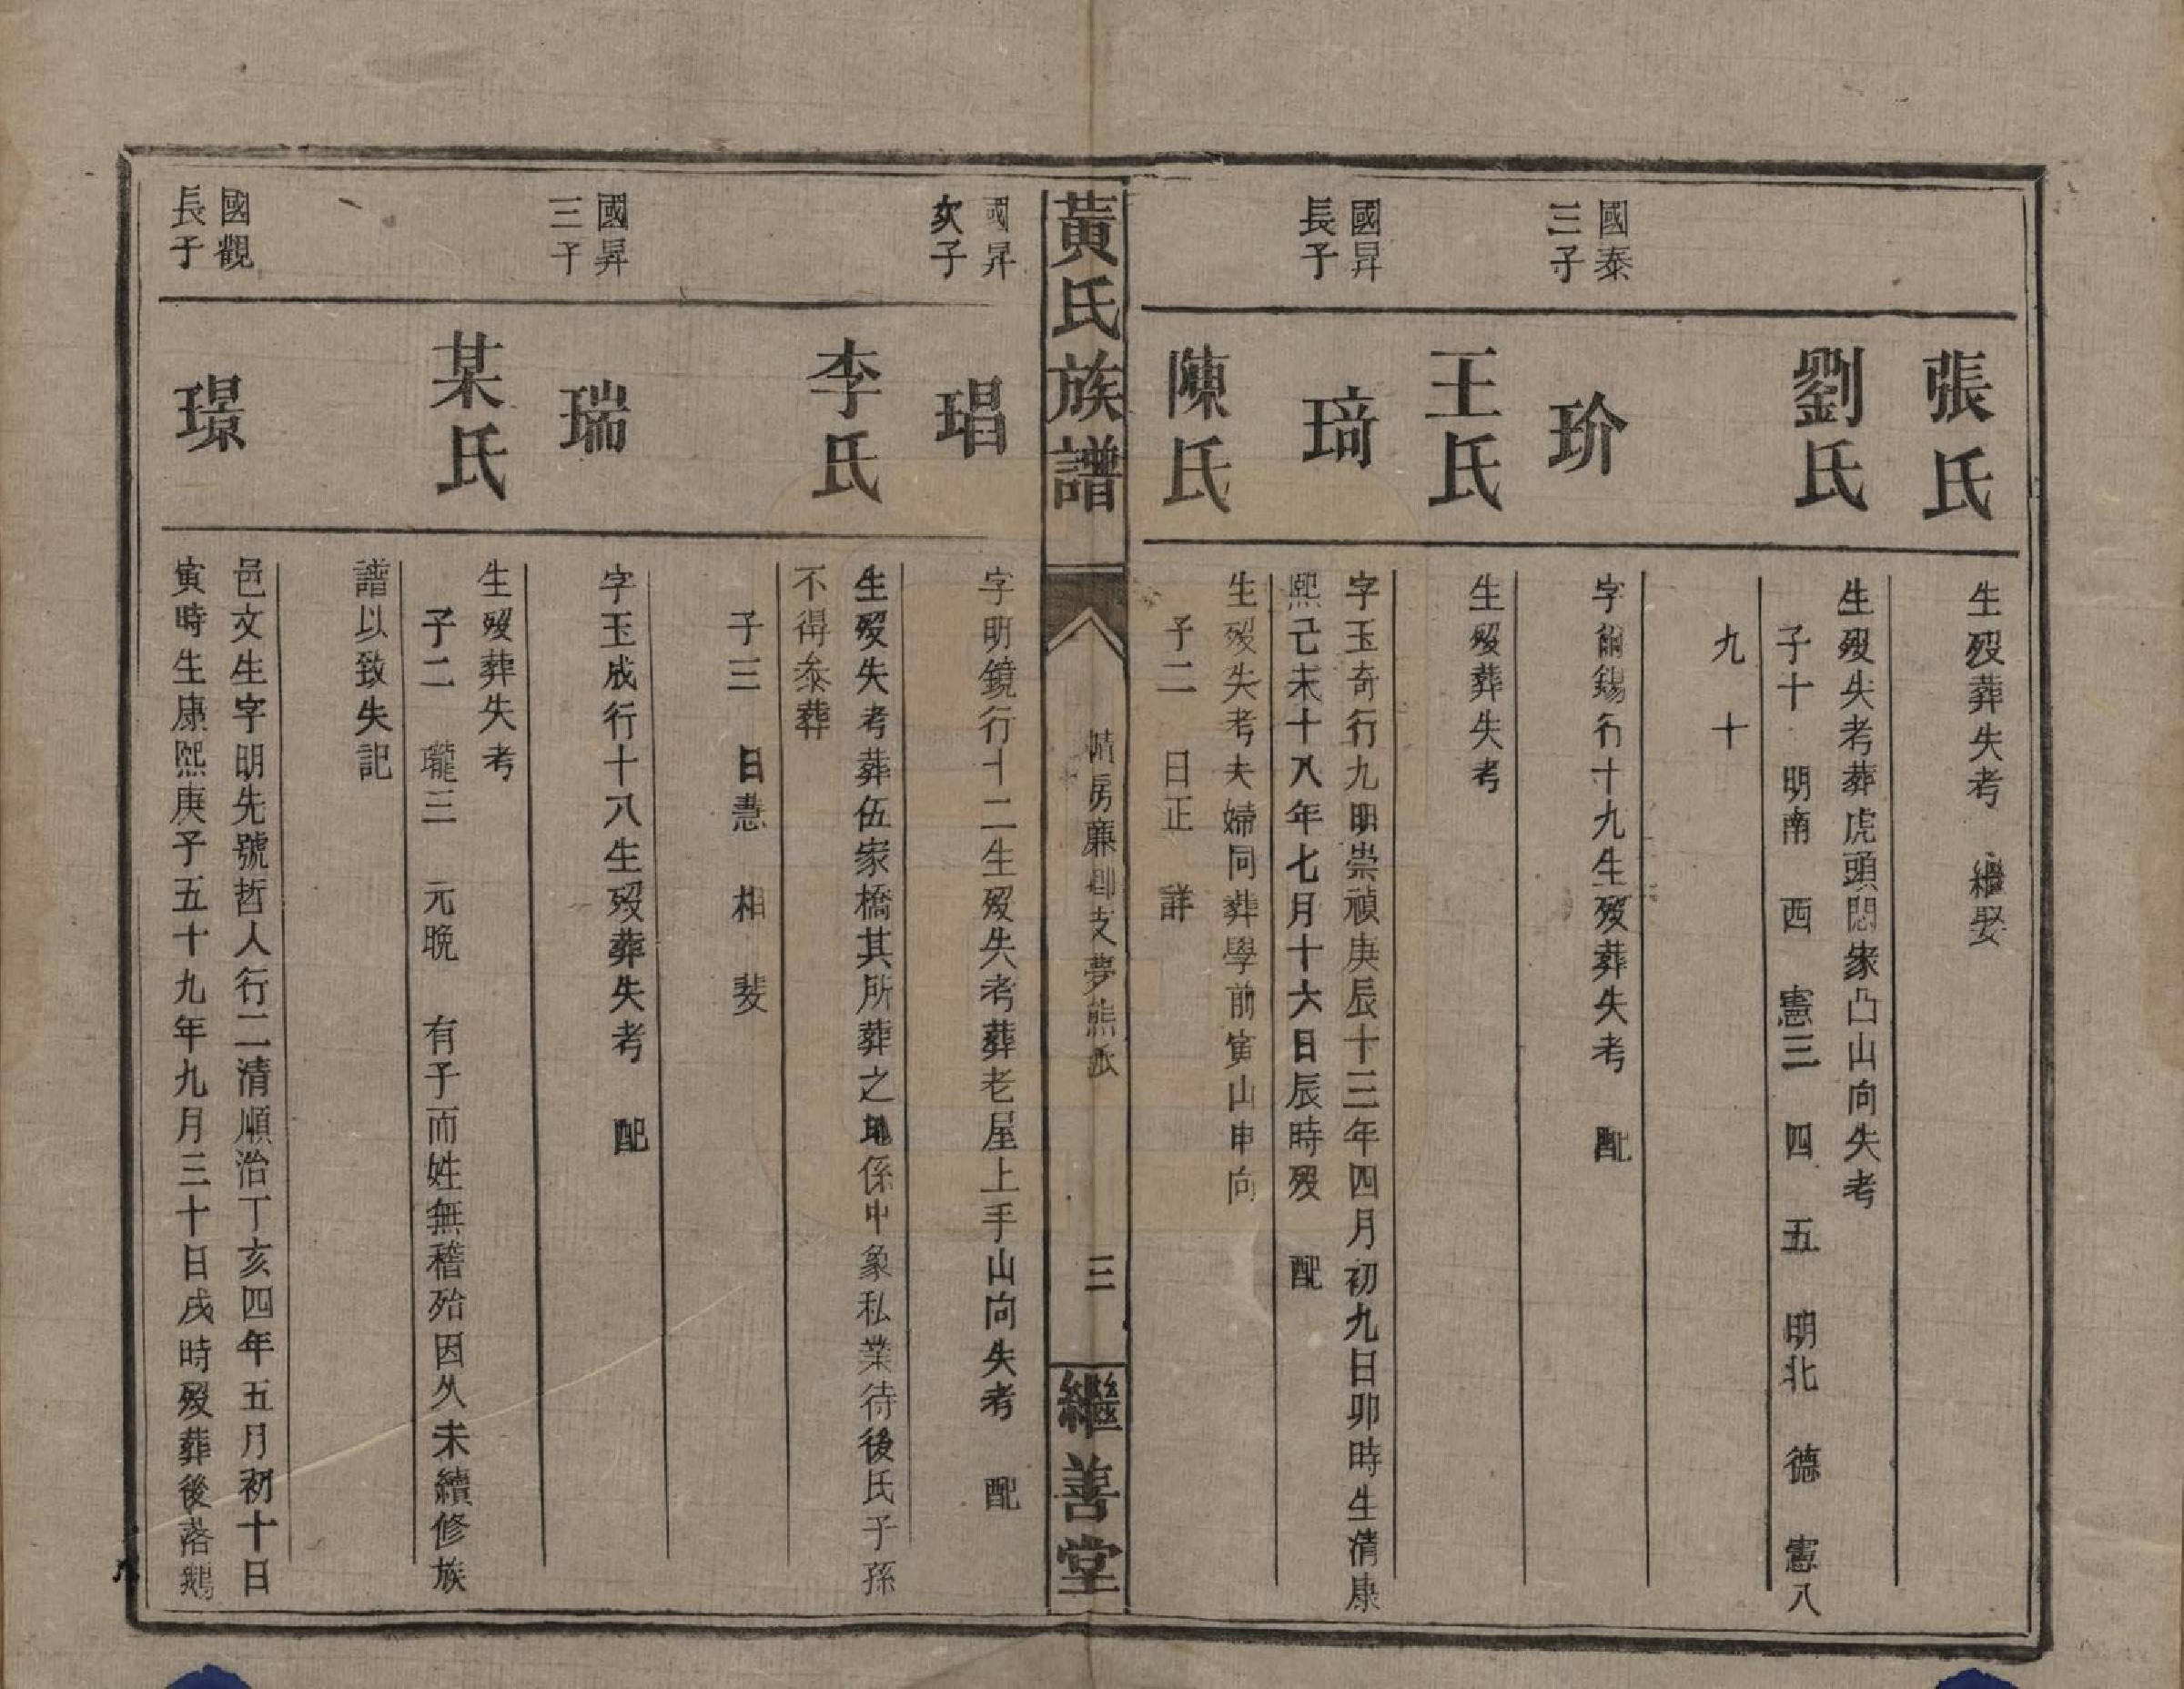 張氏
生歿葬失考　繼娶
劉氏
生歿失考葬虎頭閭象凸山向失考
子十　明南　西　憲三　四　五　明北　德　憲八
九　十
國泰
三子
玠
字爾錫行十九生歿葬失考　配
王氏
生歿葬失考
國昇
長子
琦
字玉奇行九明崇禎庚辰十三年四月初九日卯時生清康
熙己未十八年七月十六日辰時歿　配
陳氏
生歿失考夫婦同葬學前寅山申向
子二　日正　詳
黃氏族譜
房廉卿支夢熊派
三
繼善堂
國昇
次子
琩
字明鏡行十二生歿失考葬老屋上手山向失考　配
李氏
生歿失考葬伍家橋其所葬之地係中象私業待後氏子孫
不得叅葬
子三　日慧　相　斐
國昇
三子
瑞
字玉成行十八生歿葬失考　配
某氏
生歿葬失考
子二　瓏三　元晩　有子而姓無稽殆因久未續修族
譜以致失記
國觀
長子
璟
邑文生字明先號哲人行二清順治丁亥四年五月初十日
寅時生康熙庚子五十九年九月三十日戌時歿葬後落鵝